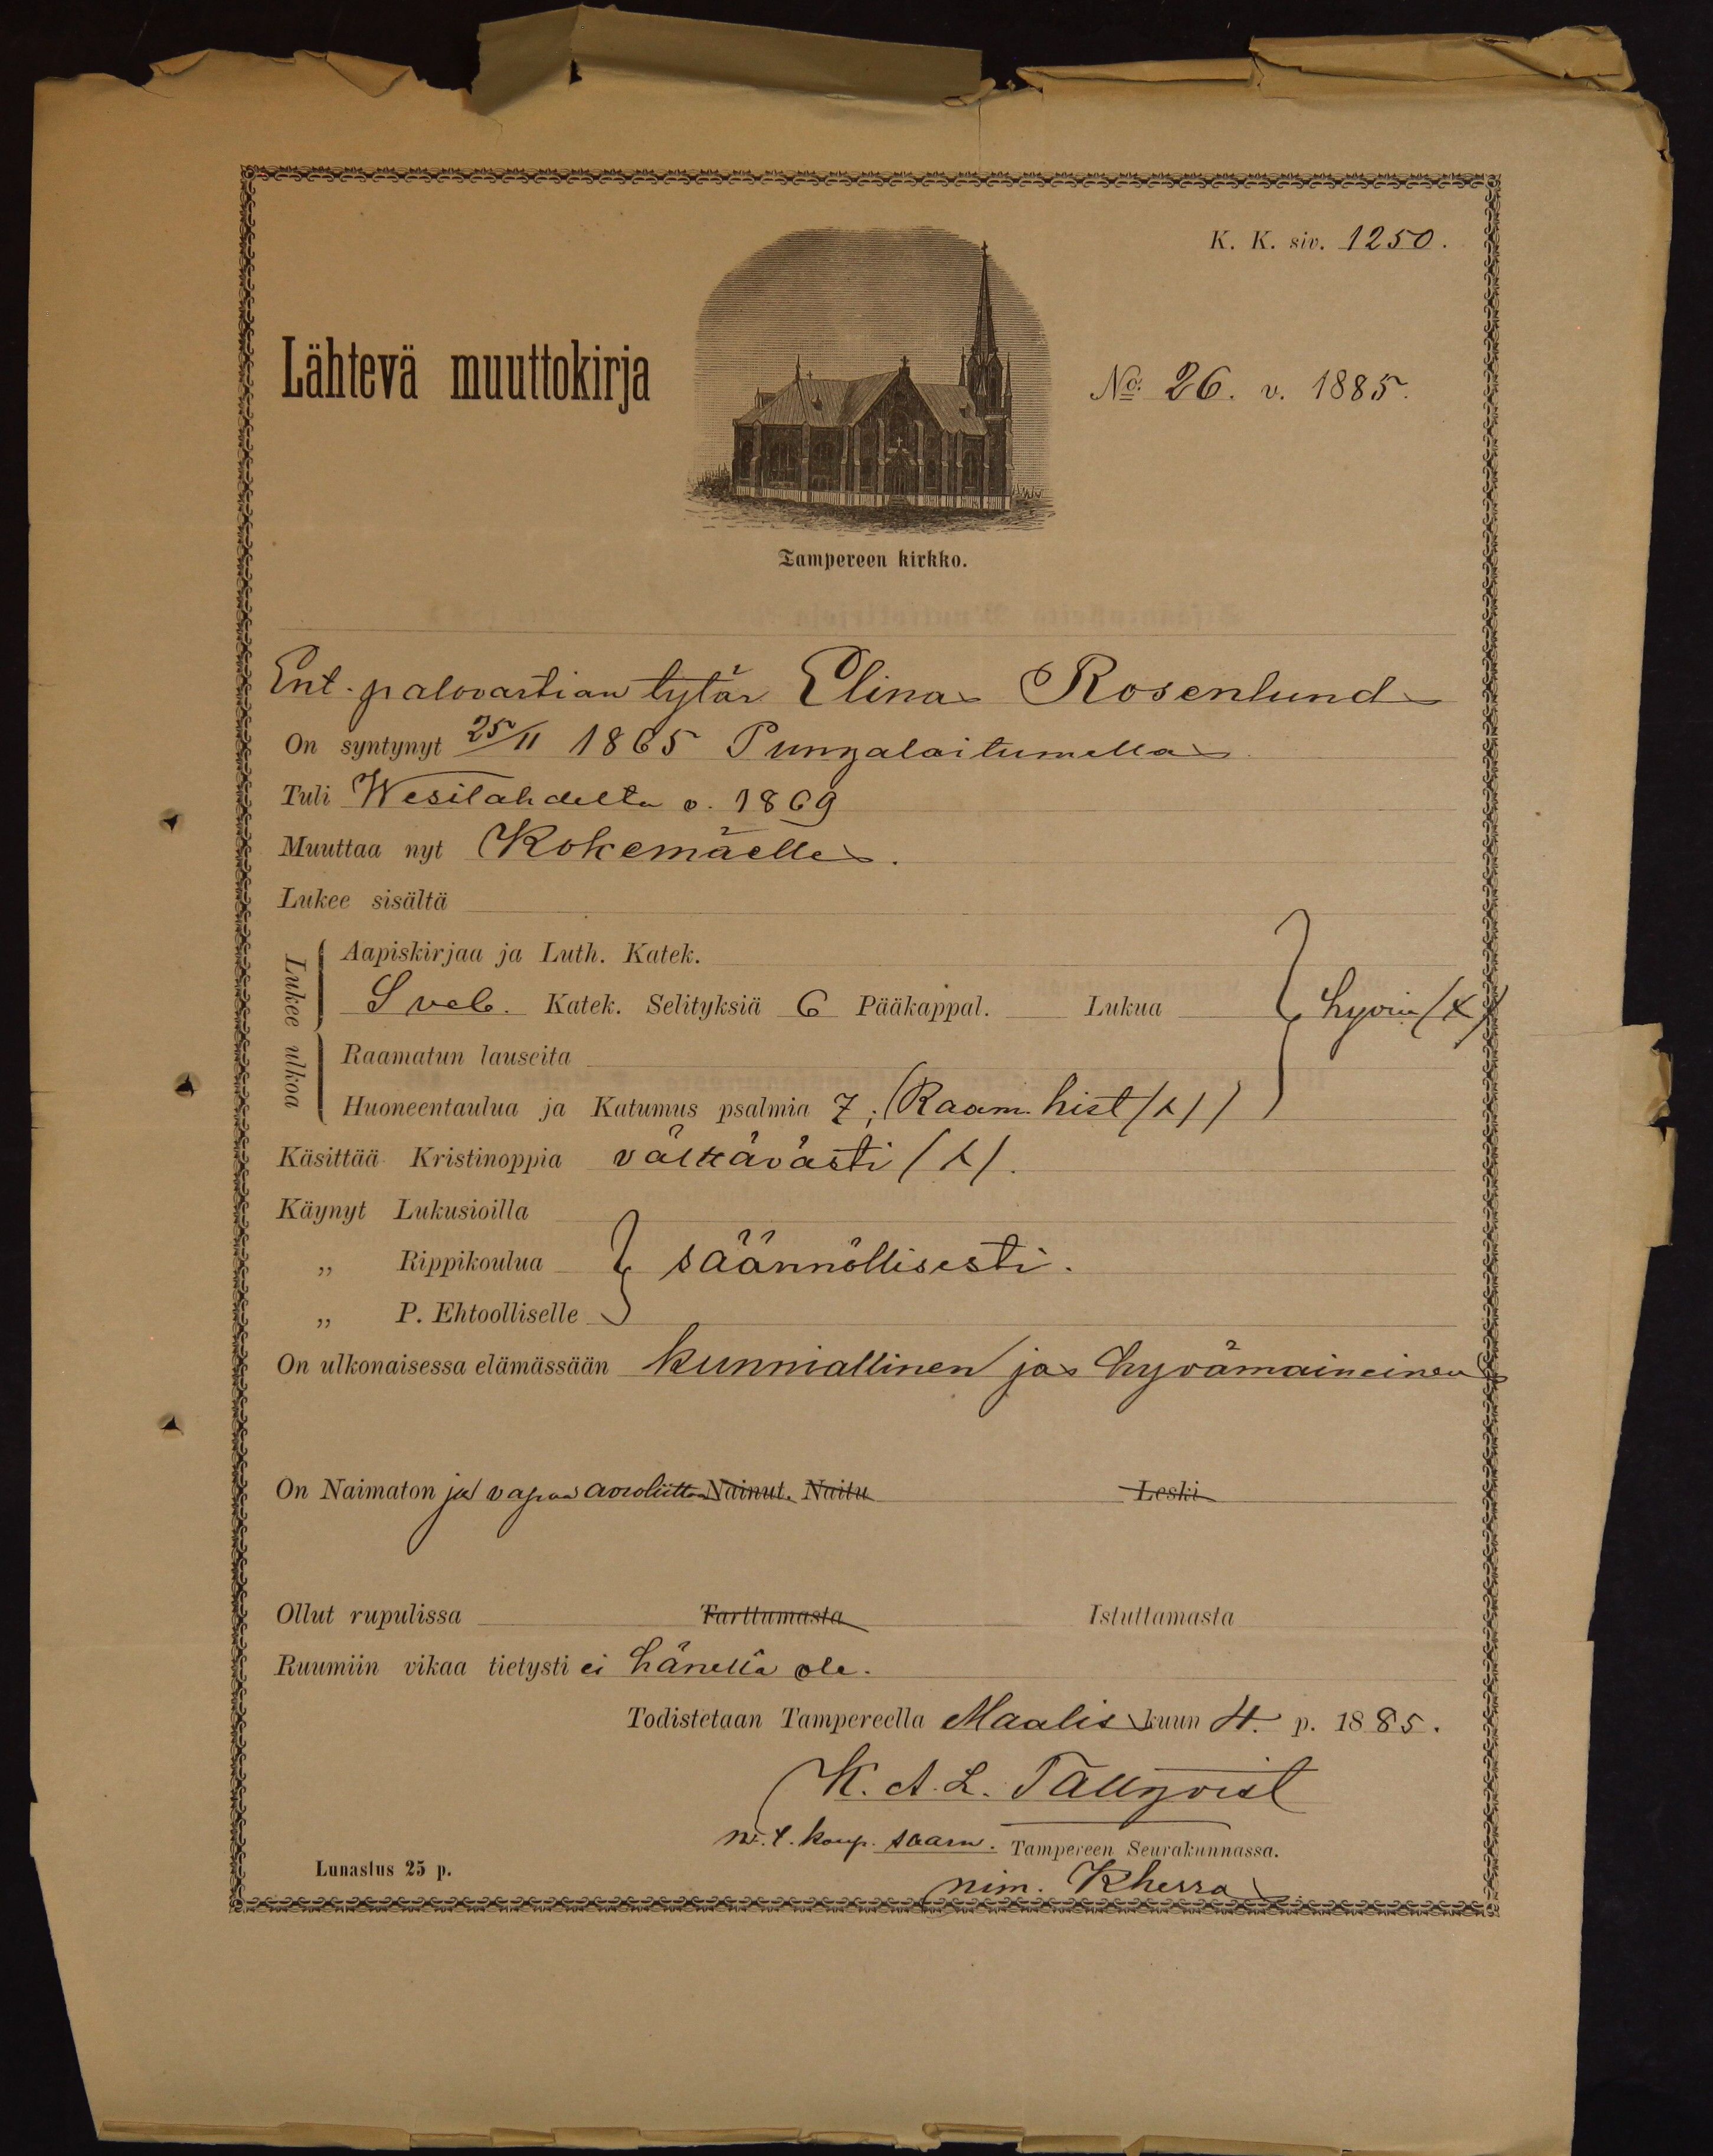 K. K. siv. 1250.
Lähtevä muuttokirja
No. 26. v. 1885.
Tampereen kirkko.
Ent. palovartian tytär Elina Rosenlund
On syntynyt 25/11 1865 Pungalaitumella
Tuli Wesilahdelta v. 1869
Muuttaa nyt Kokemäelle.
Lukee sisältä
Lukee ulkoa
Aapiskirjaa ja Luth. Katek.
Sveb. Katek. Selityksiä 6 Pääkappal. Lukua hyvin (x)
Raamatun lauseita
Huoneentaulua ja Katumus psalmia 7; (Raam. hist (x))
Käsittää Kristinoppia välttävästi (x).
Käynyt Lukusioilla
„ Rippikoulua säännöllisesti.
„ P. Ehtoolliselle
On ulkonaisessa elämässään kunniallinen ja hyvämaineinen
On Naimaton ja vapaa avioliittoon Nainut. Naitu Leski
Ollut rupulissa Tarttumasta Istuttamasta
Ruumiin vikaa tietysti ei hänellä ole.
Todistetaan Tampereella Maaliskuun 4. p. 1885.
K. A. L. Tallqvist
saarn. Tampereen Seurakunnassa.
Lunastus 25 p.
nim.